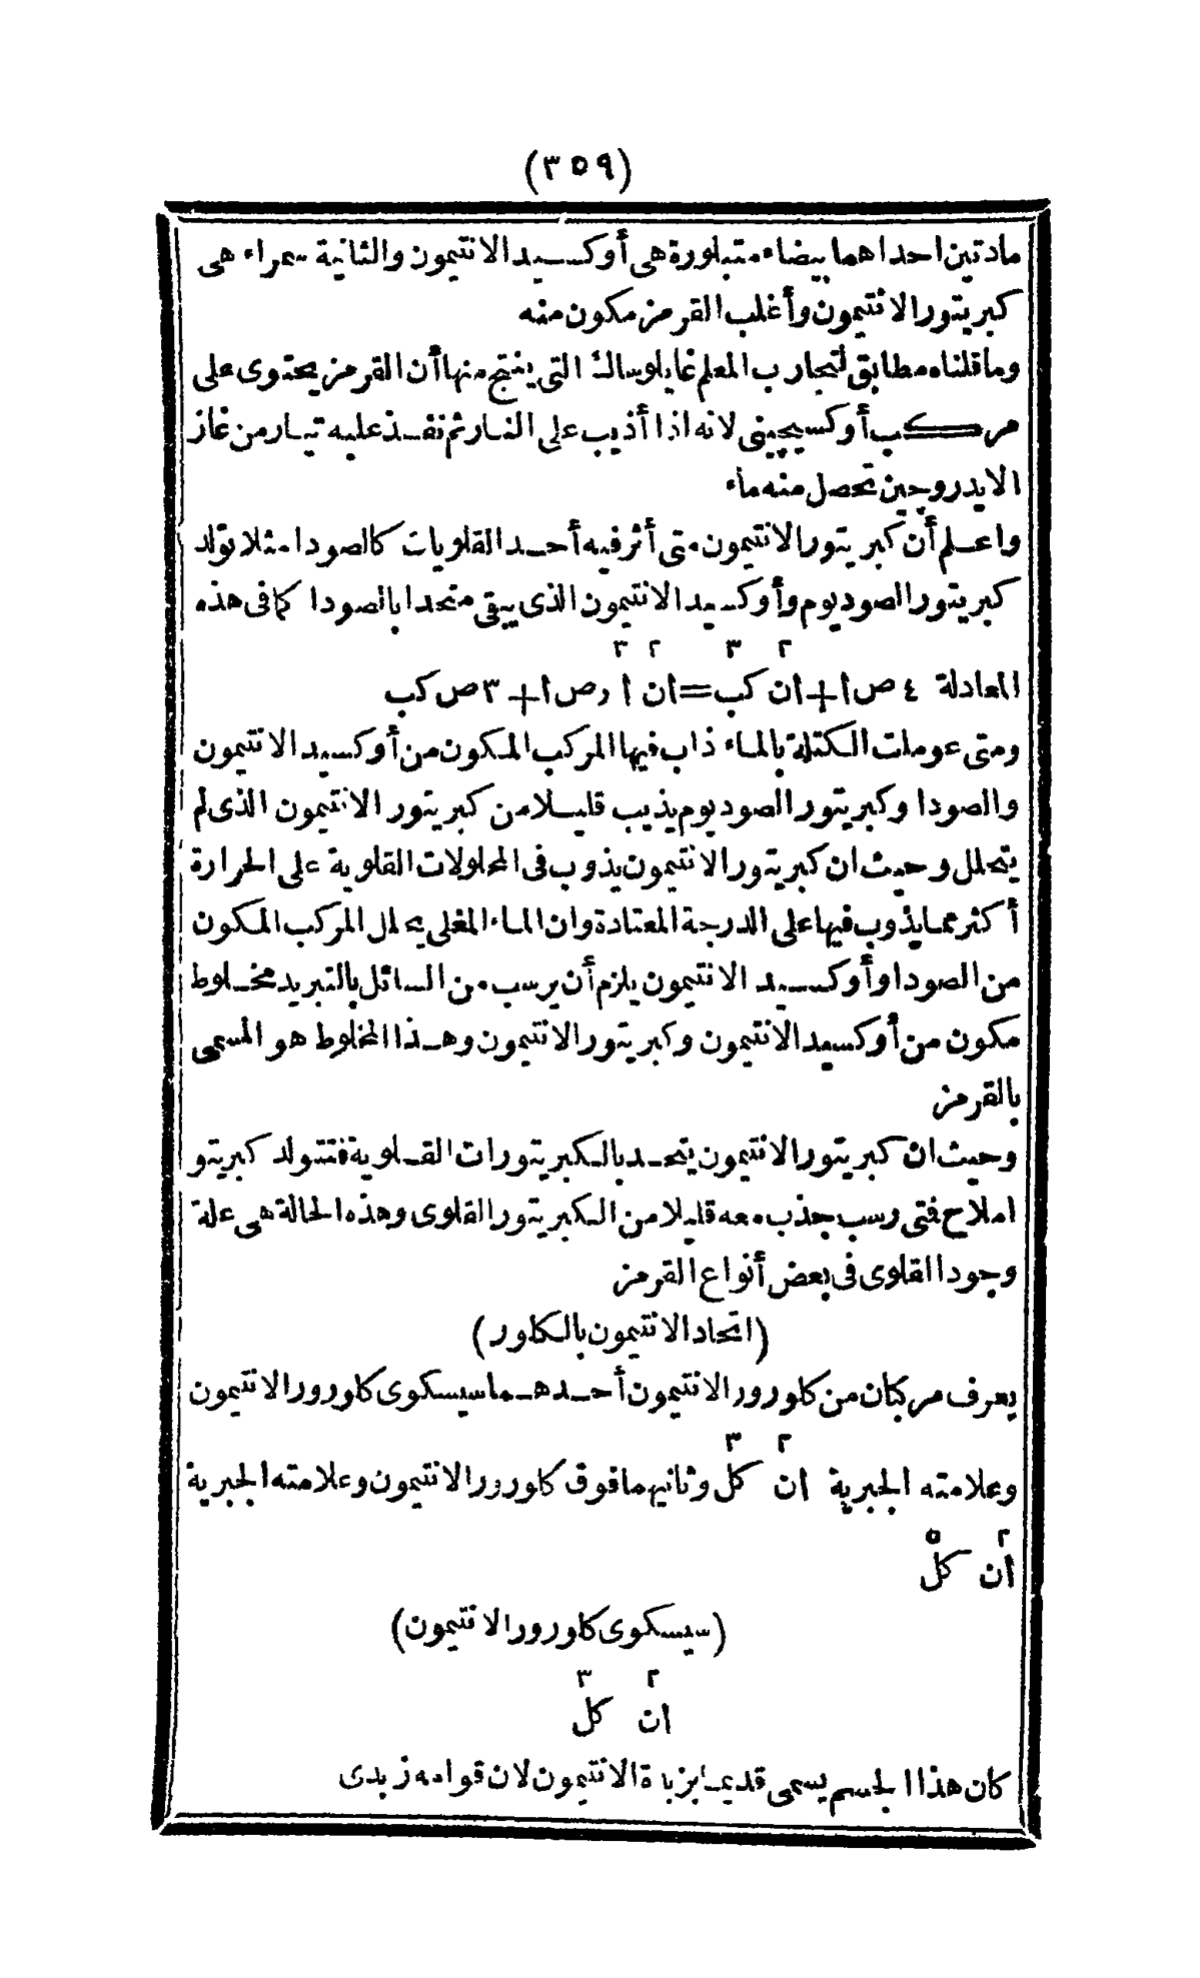 (٣٥٩)
مادتين احداهما بيضاء متبلورة هى أوكسيد الانتيمون والثانية سمراء هى
كبريتور الانتيمون وأغلب القرمز مكون منه
وما قلناه مطابق لتجارب المعلم غايلوساك التى ينتج منها أن القرمز يحتوى على
مركب أوكسيجينى لانه اذا أذيب على النار ثم نفذ عليه تيار من غاز
الايدروجين تحصل منه ماء
واعلم أن كبريتور الانتيمون متى أثر فيه أحد القلويات كالصودا مثلا تولد
كبريتور الصوديوم وأوكسيد الانتيمون الذى يبقى متحدا بالصودا كما فى هذه
٢ ٣ ٢ ٣
المعادلة ٤ ص ا + ان كب = ان ا رص ا + ٣ ص كب
ومتى عوملت الكتلة بالماء ذاب فيها المركب المكون من أوكسيد الانتيمون
والصودا وكبريتور الصوديوم يذيب قليلا من كبريتور الانتيمون الذى لم
يتحلل وحيث ان كبريتور الانتيمون يذوب فى المحلولات القلوية على الحرارة
أكثر مما يذوب فيها على الدرجة المعتادة وان الماء المغلى يحلل المركب المكون
من الصودا وأوكسيد الانتيمون يلزم أن يرسب من السائل بالتبريد مخلوط
مكون من أوكسيد الانتيمون وكبريتور الانتيمون وهذا المخلوط هو المسمى
بالقرمز
وحيث ان كبريتور الانتيمون يتحد بالكبريتورات القلوية فتتولد كبريتو
املاح فتى رسب جذب معه قليلا من الكبريتور القلوى وهذه الحالة هى علة
وجود القلوى فى بعض أنواع القرمز
(اتحاد الانتيمون بالكلور)
يعرف مركبان من كلورور الانتيمون أحدهما سيسكوى كلورور الانتيمون
٢ ٣
وعلامته الجبرية ان كل وثانيهما فوق كلورور الانتيمون وعلامته الجبرية
٢ ٥
ان كل
(سيسكوى كلورور الانتيمون)
٢ ٣
ان كل
كان هذا الجسم يسمى قديما بزبدة الانتيمون لان قوامه زبدى